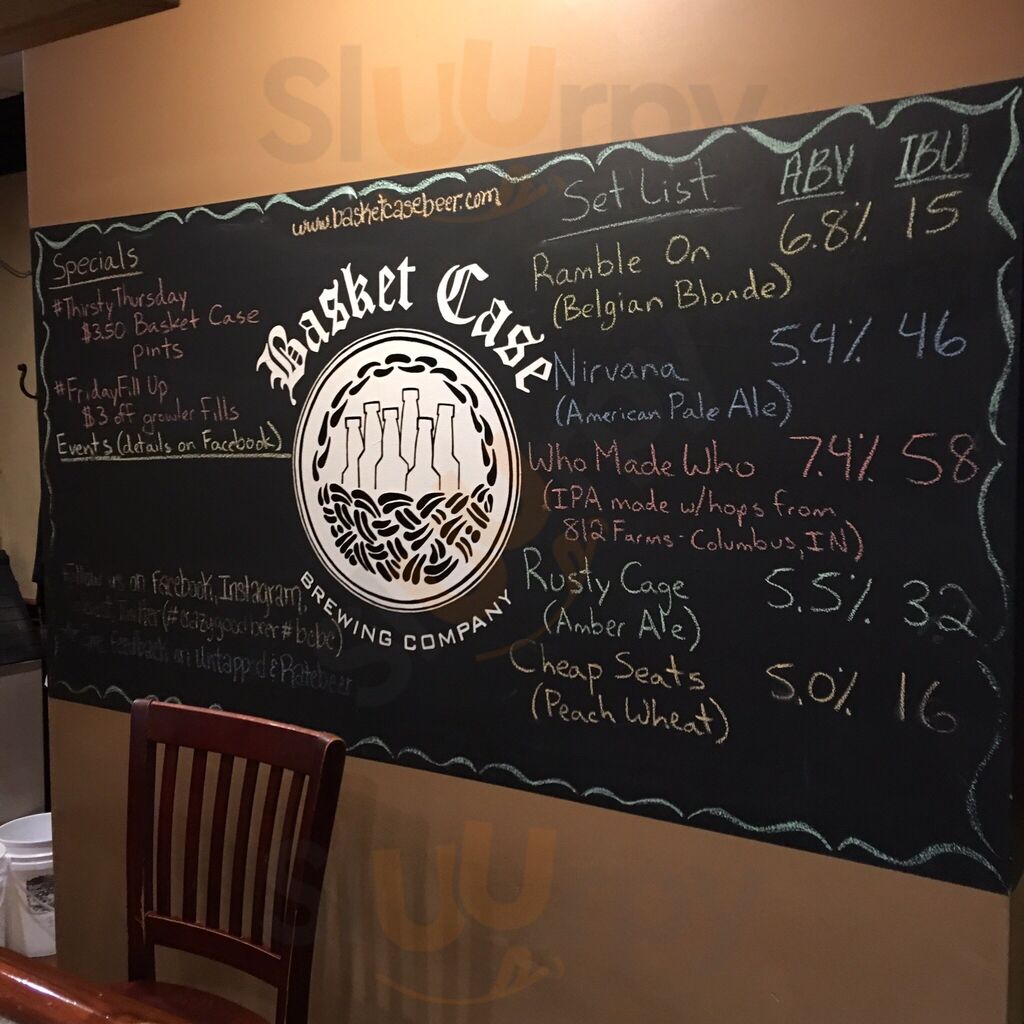 Sluurpy
www.basketcasebeer.com
Specials
#ThirstyThursday
$3.50 Basket Case
pints
#FridayFill Up
$3 off growler fills
Events (details on Facebook)
Follow us on Facebook, Instagram,
Twitter (#crazygoodbeer #bcbc)
feedback on Untappd & Ratebeer
Basket Case
BREWING COMPANY
Set List ABV IBU
Ramble On 6.8% 15
(Belgian Blonde)
Nirvana 5.4% 46
(American Pale Ale)
Who Made Who 7.4% 58
(IPA made w/hops from
812 Farms - Columbus, IN)
Rusty Cage 5.5% 32
(Amber Ale)
Cheap Seats 5.0% 16
(Peach Wheat)
Sluurpy